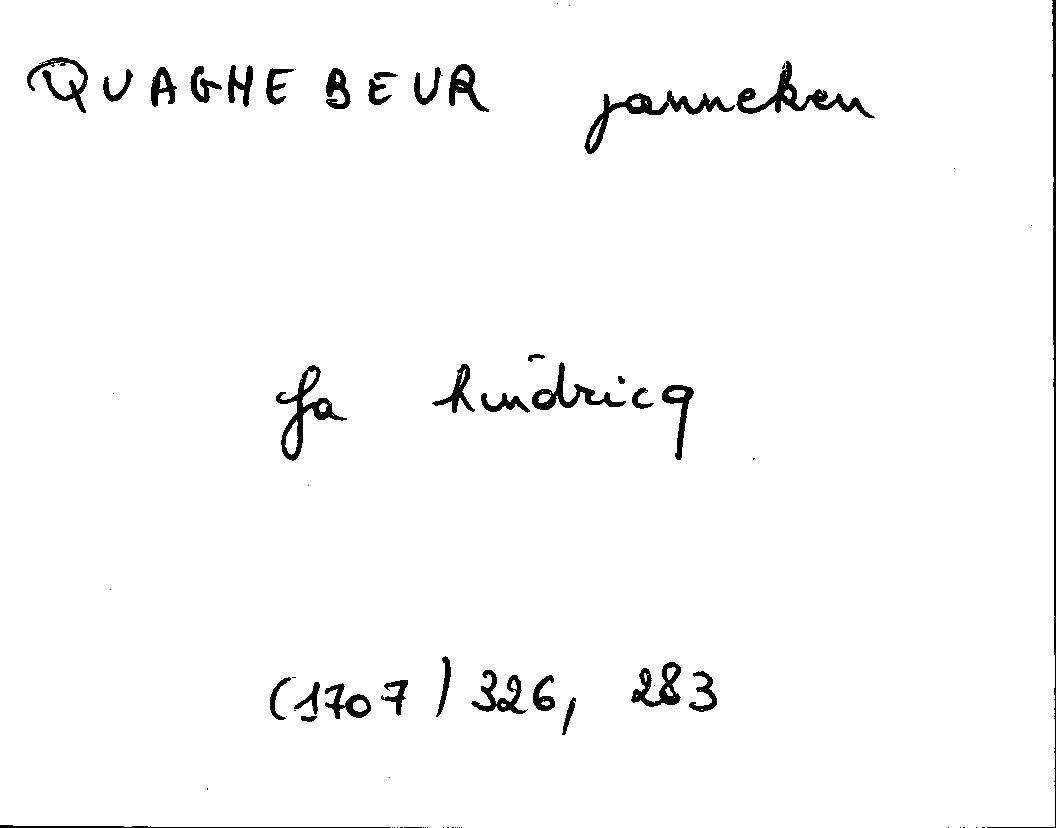 QUAGHEBEUR janneken
fa hindricq
(1707) 326, 283